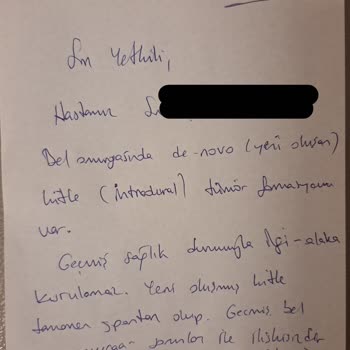 Sn Yetkili,
Hastamız Sn
Bel omurgasında de-novo (yeni oluşan)
kitle (intradural) tümör formasyonu
var.
Geçmiş sağlık durumuyla ilgi-alaka
kurulamaz. Yeni oluşmuş kitle
tamamen spontan olup. Geçmiş bel
sorunlar ile ilişkisinden